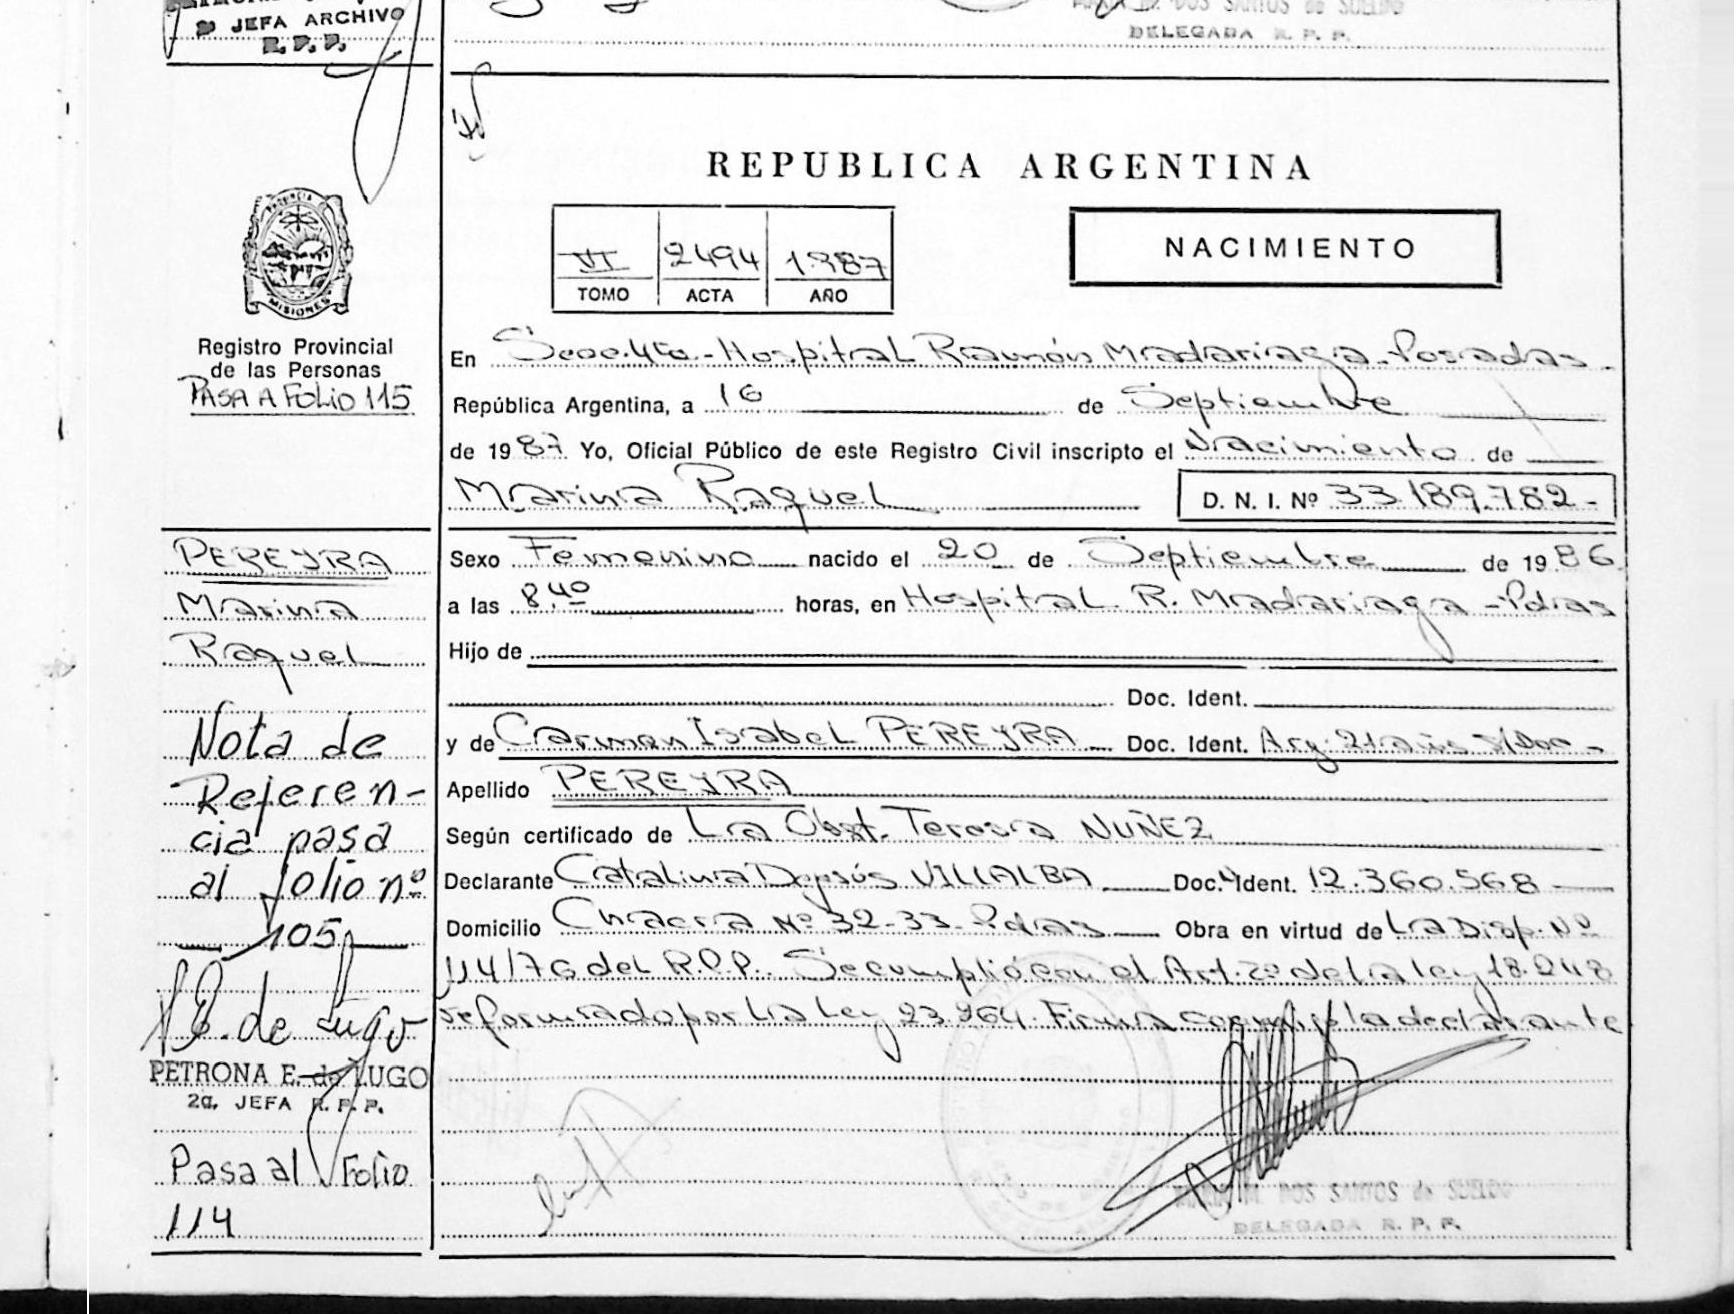 JEFA ARCHIVO
R. P. P.
MARIA M. DOS SANTOS de SUELDO
DELEGADA R. P. P.
REPUBLICA ARGENTINA
VI 2494 1.987
TOMO ACTA AÑO
NACIMIENTO
PROVINCIA
MISIONES
Registro Provincial
de las Personas
PASA A FOLIO 115
En Secc. 4ta.-Hospital Ramón Madariaga-Posadas
República Argentina, a 16 de Septiembre
de 1987. Yo, Oficial Público de este Registro Civil inscripto el Nacimiento de
Marina Raquel D. N. I. Nº 33.189.782-
Sexo Femenino nacido el 20 de Septiembre de 1986
a las 8,40 horas, en Hospital R. Madariaga-Pdas
Hijo de
Doc. Ident.
y de Carmen Isabel PEREYRA Doc. Ident. Arg. 21 años s/Doc-
Apellido PEREYRA
Según certificado de La Obst. Teresa NUÑEZ
Declarante Catalina VILLALBA Doc. Ident. 12.360.568
Domicilio Chacra Nº 32-33-Pdas Obra en virtud de La Disp. Nº
114/76 del R.P.P. Se cumplió con el Art. 2º de la ley 18.248
reformado por La Ley 23.264. Firma la declarante
MARIA M. DOS SANTOS de SUELDO
DELEGADA R. P. P.
PEREYRA
Marina
Raquel
Nota de
Referen-
cia pasa
al folio nº
105
E. de Lugo
PETRONA E. de LUGO
2a. JEFA R. P. P.
Pasa al Folio
114